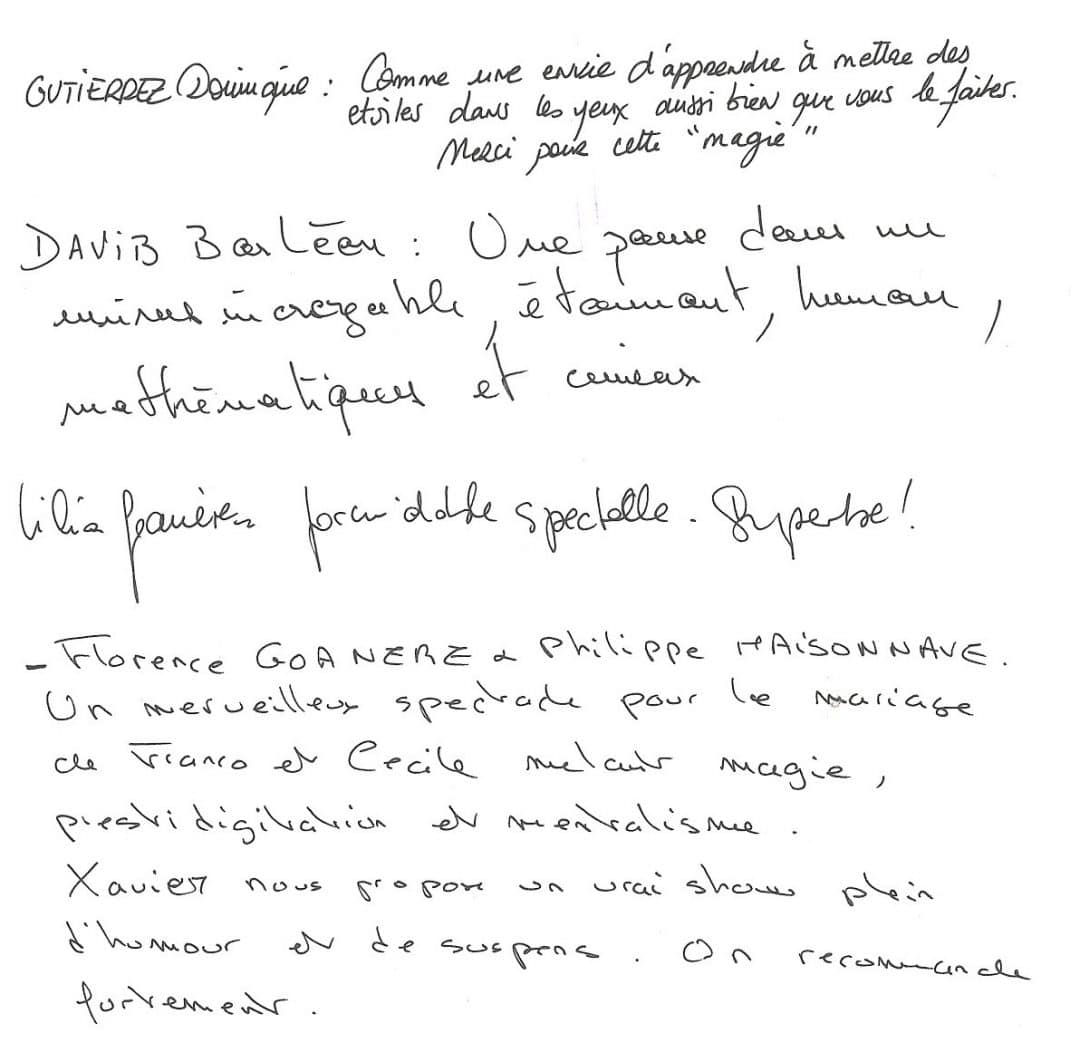 GUTIERREZ Dominique : Comme une envie d'apprendre à mettre des
etoiles dans les yeux aussi bien que vous le faites.
Merci pour cette "magie"
DAVID : Une pause dans un
univers incroyable, étonnant, humain,
mathématiques et
Lilia formidable spectacle. Superbe !
- Florence GOANERE & Philippe MAISONNAVE.
Un merveilleux spectacle pour le mariage
de Franco et Cecile melant magie,
prestidigitation et mentalisme.
Xavier nous propose un vrai show plein
d'humour et de suspens. On recommande
fortement.